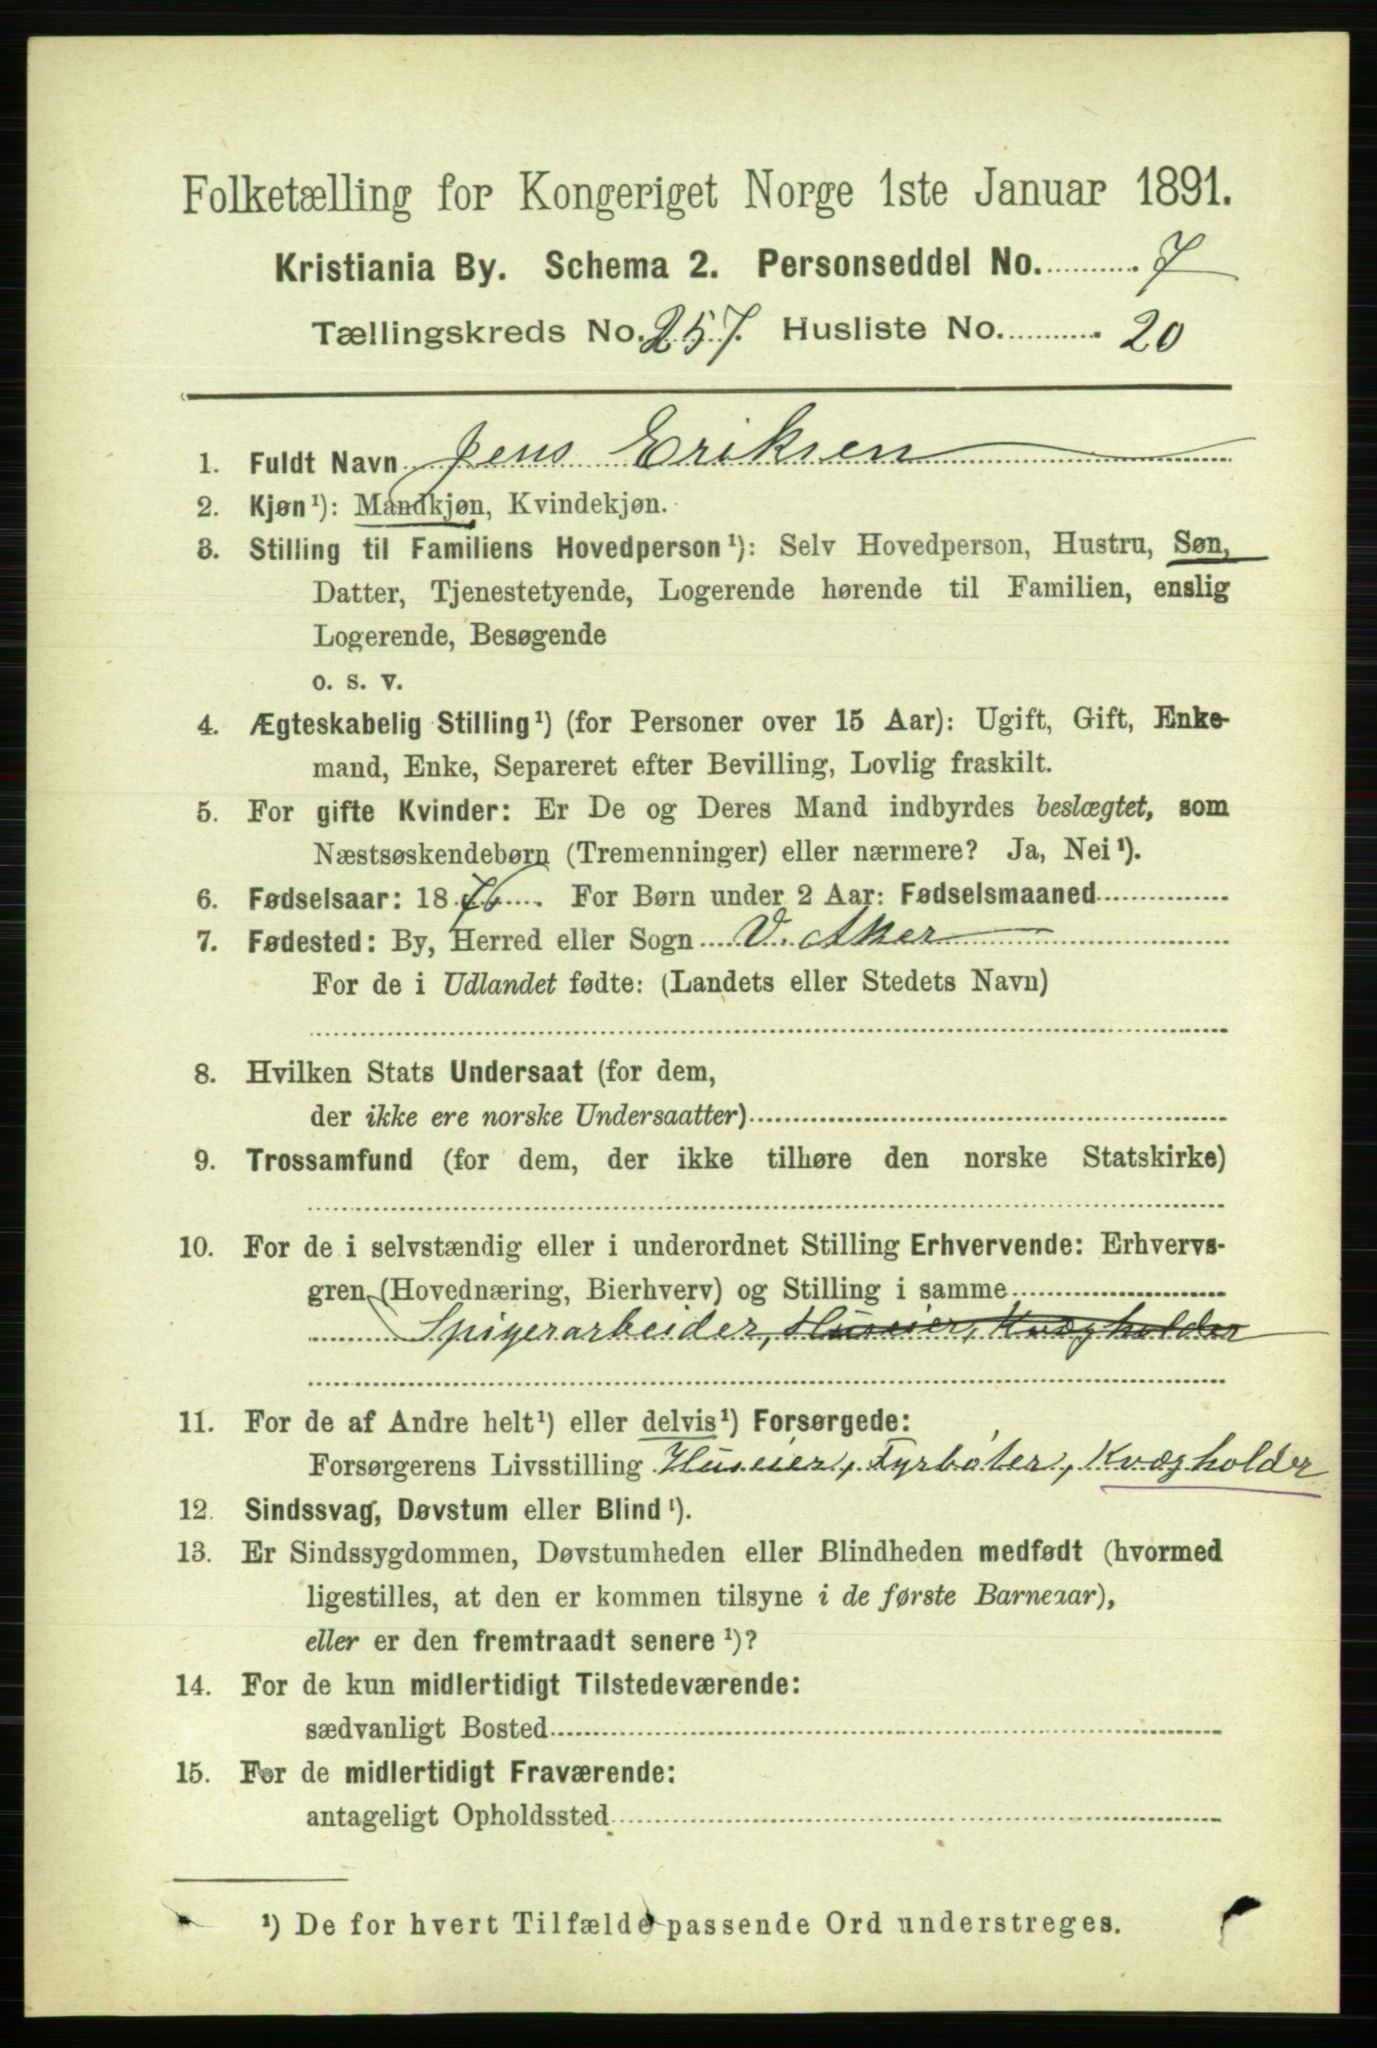 Folketælling for Kongeriget Norge 1ste Januar 1891.
Kristiania By. Schema 2. Personseddel No. 7
Tællingskreds No. 257. Husliste No. 20
1. Fuldt Navn Jens Eriksen
2. Kjøn¹): Mandkjøn, Kvindekjøn.
3. Stilling til Familiens Hovedperson¹): Selv Hovedperson, Hustru, Søn,
Datter, Tjenestetyende, Logerende hørende til Familien, enslig
Logerende, Besøgende
o. s. v.
4. Ægteskabelig Stilling¹) (for Personer over 15 Aar): Ugift, Gift, Enke-
mand, Enke, Separeret efter Bevilling, Lovlig fraskilt.
5. For gifte Kvinder: Er De og Deres Mand indbyrdes beslægtet, som
Næstsøskendebørn (Tremenninger) eller nærmere? Ja, Nei¹).
6. Fødselsaar: 1876. For Børn under 2 Aar: Fødselsmaaned
7. Fødested: By, Herred eller Sogn V. Aker
For de i Udlandet fødte: (Landets eller Stedets Navn)
8. Hvilken Stats Undersaat (for dem,
der ikke ere norske Undersaatter)
9. Trossamfund (for dem, der ikke tilhøre den norske Statskirke)
10. For de i selvstændig eller i underordnet Stilling Erhvervende: Erhvervs-
gren (Hovednæring, Bierhverv) og Stilling i samme
Spigerarbeider, Huseier, Kvægholder
11. For de af Andre helt¹) eller delvis¹) Forsørgede:
Forsørgerens Livsstilling Huseier, Fyrbøter, Kvægholder
12. Sindssvag, Døvstum eller Blind¹).
13. Er Sindssygdommen, Døvstumheden eller Blindheden medfødt (hvormed
ligestilles, at den er kommen tilsyne i de første Barneaar),
eller er den fremtraadt senere¹)?
14. For de kun midlertidigt Tilstedeværende:
sædvanligt Bosted
15. For de midlertidigt Fraværende:
antageligt Opholdssted
¹) De for hvert Tilfælde passende Ord understreges.